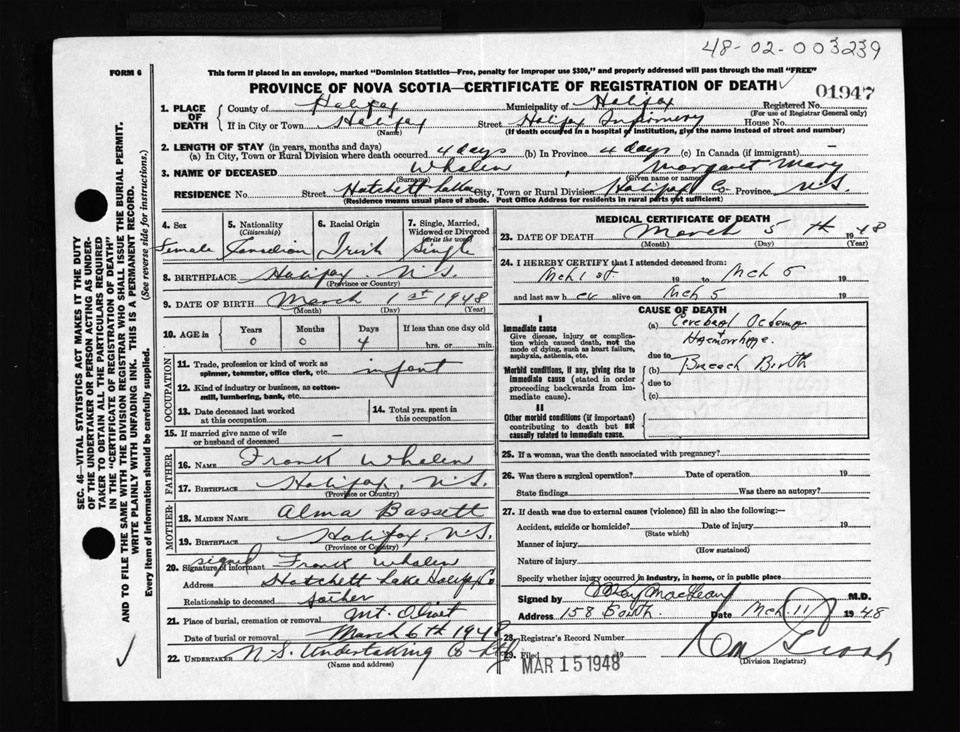 48-02-003239
FORM 6
This form if placed in an envelope, marked "Dominion Statistics—Free, penalty for improper use $300," and properly addressed will pass through the mail "FREE"
PROVINCE OF NOVA SCOTIA—CERTIFICATE OF REGISTRATION OF DEATH
01947
1. PLACE OF DEATH
County of Halifax Municipality of Halifax Registered No.
(For use of Registrar General only)
If in City or Town Halifax Street Halifax Infirmary House No.
(Name) (If death occurred in a hospital or institution, give the name instead of street and number)
2. LENGTH OF STAY (in years, months and days)
(a) In City, Town or Rural Division where death occurred 4 days (b) In Province 4 days (c) In Canada (if immigrant) —
3. NAME OF DECEASED Whalen, Margaret Mary
(Surname) (Given name or names)
RESIDENCE No. Street Hatchett Lake City, Town or Rural Division Halifax Co Province N.S.
(Residence means usual place of abode. Post Office Address for residents in rural parts not sufficient)
4. Sex 5. Nationality (Citizenship) 6. Racial Origin 7. Single, Married, Widowed or Divorced (Write the word)
Female Canadian Irish Single
8. BIRTHPLACE Halifax N.S.
(Province or Country)
9. DATE OF BIRTH March 1st 1948
(Month) (Day) (Year)
10. AGE in Years Months Days If less than one day old
0 0 4 hrs. or min.
OCCUPATION
11. Trade, profession or kind of work as spinner, teamster, office clerk, etc. infant
12. Kind of industry or business, as cotton-mill, lumbering, bank, etc.
13. Date deceased last worked at this occupation
14. Total yrs. spent in this occupation
15. If married give name of wife or husband of deceased —
FATHER
16. NAME Frank Whalen
17. BIRTHPLACE Halifax, N.S.
(Province or Country)
MOTHER
18. MAIDEN NAME Alma Bassett
19. BIRTHPLACE Halifax, N.S.
(Province or Country)
20. Signature of informant signed Frank Whalen
Address Hatchett Lake Halifax Co
Relationship to deceased father
21. Place of burial, cremation or removal Mt. Olivet
Date of burial or removal March 6th 1948
22. UNDERTAKER N.S. Undertaking Co Ltd
(Name and address)
MEDICAL CERTIFICATE OF DEATH
23. DATE OF DEATH March 5th 1948
(Month) (Day) (Year)
24. I HEREBY CERTIFY that I attended deceased from:
Mch 1st 19 to Mch 5 19
and last saw her alive on Mch 5 19
CAUSE OF DEATH
I
Immediate cause
Give disease, injury or complication which caused death, not the mode of dying, such as heart failure, asphyxia, asthenia, etc.
(a) Cerebral Oedema
Haemorrhage
due to
Morbid conditions, if any, giving rise to immediate cause (stated in order proceeding backwards from immediate cause).
(b) Breech Birth
due to
(c)
II
Other morbid conditions (if important) contributing to death but not causally related to immediate cause.
25. If a woman, was the death associated with pregnancy?
26. Was there a surgical operation? Date of operation 19
State findings Was there an autopsy?
27. If death was due to external causes (violence) fill in also the following:—
Accident, suicide or homicide? Date of injury 19
(State which)
Manner of injury
(How sustained)
Nature of injury
Specify whether injury occurred in industry, in home, or in public place
Signed by MacLean M.D.
Address 158 South Date Mch 11 1948
28. Registrar's Record Number
29. Filed MAR 15 1948
(Division Registrar)
SEC. 46—VITAL STATISTICS ACT MAKES IT THE DUTY
OF THE UNDERTAKER OR PERSON ACTING AS UNDER-
TAKER TO OBTAIN ALL THE PARTICULARS REQUIRED
IN THE "CERTIFICATE OF REGISTRATION OF DEATH"
AND TO FILE THE SAME WITH THE DIVISION REGISTRAR WHO SHALL ISSUE THE BURIAL PERMIT.
WRITE PLAINLY WITH UNFADING INK. THIS IS A PERMANENT RECORD.
Every item of information should be carefully supplied. (See reverse side for instructions.)